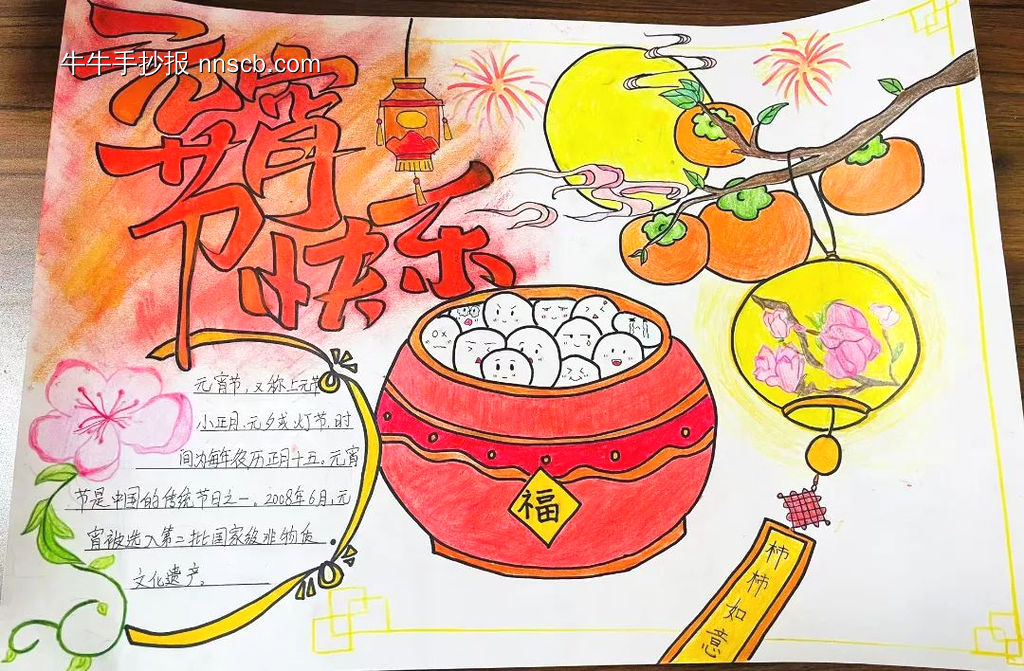 牛牛手抄报 nnscb.com
元宵
节快乐
元宵节，又称上元节
小正月、元夕或灯节，时
间为每年农历正月十五。元宵
节是中国的传统节日之一。2008年6月，元
宵被选入第二批国家级非物质
文化遗产。
福
柿柿如意